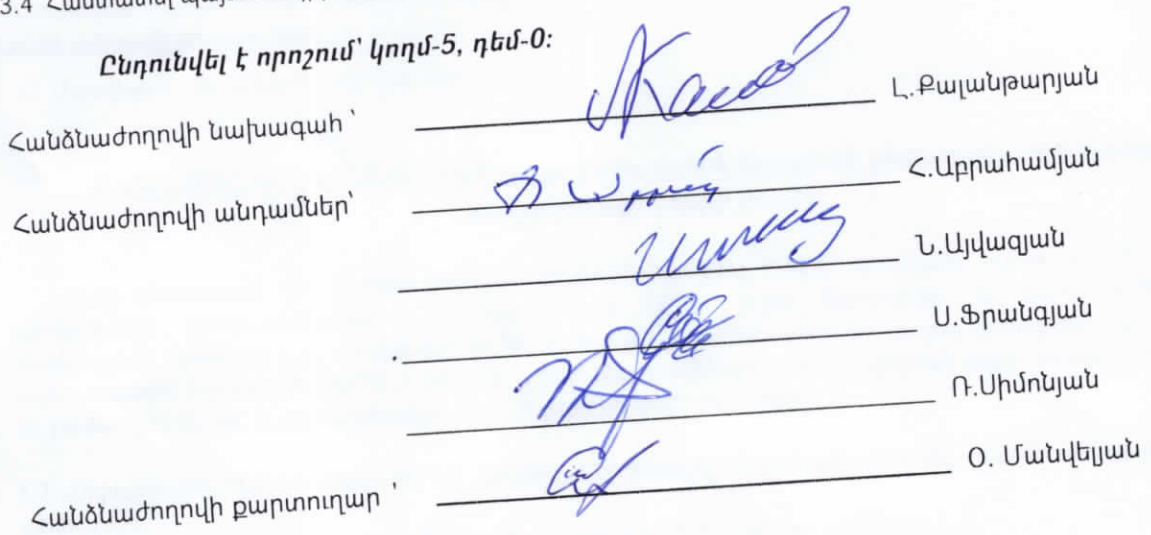 3.4 Հաստատել
Ընդունվել է որոշում՝ կողմ-5, դեմ-0:
Հանձնաժողովի նախագահ ՝ Լ.Քալանթարյան
Հանձնաժողովի անդամներ՝ Հ.Աբրահամյան
Ն.Այվազյան
Ս.Ֆրանգյան
Ռ.Սիմոնյան
Հանձնաժողովի քարտուղար ՝ Օ. Մանվելյան